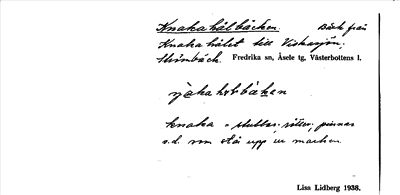 Knakahålbäcken Bäck från
Knakahålet till Viskasjön;
Strömbäck. Fredrika sn, Åsele tg, Västerbottens l.
knaka = stubbar, rötter, pinnar
o.d. som stå upp ur marken.
Lisa Lidberg 1938.